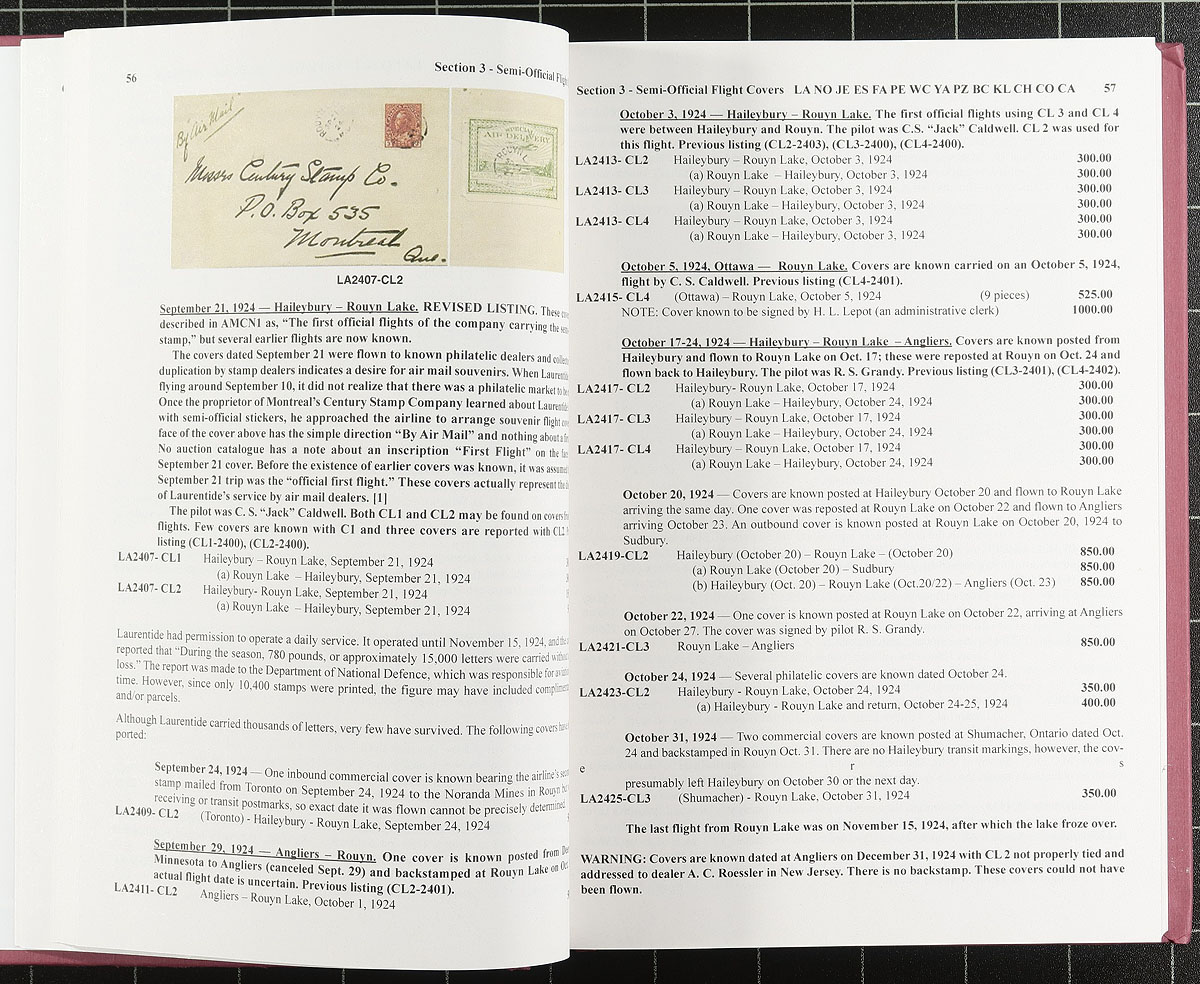 56
Section 3 - Semi-Official Flight
By Air Mail
Messrs Century Stamp Co.
P.O. Box 535
Montreal
Que.
SPECIAL
AIR DELIVERY
LA2407-CL2
September 21, 1924 — Haileybury – Rouyn Lake. REVISED LISTING. These
described in AMCN1 as, “The first official flights of the company carrying the
stamp,” but several earlier flights are now known.
The covers dated September 21 were flown to known philatelic dealers and
duplication by stamp dealers indicates a desire for air mail souvenirs. When Laurentide
flying around September 10, it did not realize that there was a philatelic market to
Once the proprietor of Montreal’s Century Stamp Company learned about Laurentide
with semi-official stickers, he approached the airline to arrange souvenir flight
face of the cover above has the simple direction “By Air Mail” and nothing about a
No auction catalogue has a note about an inscription “First Flight” on the
September 21 cover. Before the existence of earlier covers was known, it was assumed
September 21 trip was the “official first flight.” These covers actually represent the
of Laurentide’s service by air mail dealers. [1]
The pilot was C. S. “Jack” Caldwell. Both CL1 and CL2 may be found on covers
flights. Few covers are known with C1 and three covers are reported with CL2
listing (CL1-2400), (CL2-2400).
LA2407- CL1 Haileybury – Rouyn Lake, September 21, 1924
(a) Rouyn Lake – Haileybury, September 21, 1924
LA2407- CL2 Haileybury- Rouyn Lake, September 21, 1924
(a) Rouyn Lake – Haileybury, September 21, 1924
Laurentide had permission to operate a daily service. It operated until November 15, 1924, and the
reported that “During the season, 780 pounds, or approximately 15,000 letters were carried without
loss.” The report was made to the Department of National Defence, which was responsible for
time. However, since only 10,400 stamps were printed, the figure may have included
and/or parcels.
Although Laurentide carried thousands of letters, very few have survived. The following covers
ported:
September 24, 1924 — One inbound commercial cover is known bearing the airline’s
stamp mailed from Toronto on September 24, 1924 to the Noranda Mines in Rouyn
receiving or transit postmarks, so exact date it was flown cannot be precisely determined
LA2409- CL2 (Toronto) - Haileybury - Rouyn Lake, September 24, 1924
September 29, 1924 — Angliers – Rouyn. One cover is known posted from
Minnesota to Angliers (canceled Sept. 29) and backstamped at Rouyn Lake on
actual flight date is uncertain. Previous listing (CL2-2401).
LA2411- CL2 Angliers – Rouyn Lake, October 1, 1924
Section 3 - Semi-Official Flight Covers LA NO JE ES FA PE WC YA PZ BC KL CH CO CA 57
October 3, 1924 — Haileybury – Rouyn Lake. The first official flights using CL 3 and CL 4
were between Haileybury and Rouyn. The pilot was C.S. “Jack” Caldwell. CL 2 was used for
this flight. Previous listing (CL2-2403), (CL3-2400), (CL4-2400).
LA2413- CL2 Haileybury – Rouyn Lake, October 3, 1924 300.00
(a) Rouyn Lake – Haileybury, October 3, 1924 300.00
LA2413- CL3 Haileybury – Rouyn Lake, October 3, 1924 300.00
(a) Rouyn Lake – Haileybury, October 3, 1924 300.00
LA2413- CL4 Haileybury – Rouyn Lake, October 3, 1924 300.00
(a) Rouyn Lake – Haileybury, October 3, 1924 300.00
October 5, 1924, Ottawa — Rouyn Lake. Covers are known carried on an October 5, 1924,
flight by C. S. Caldwell. Previous listing (CL4-2401).
LA2415- CL4 (Ottawa) – Rouyn Lake, October 5, 1924 (9 pieces) 525.00
NOTE: Cover known to be signed by H. L. Lepot (an administrative clerk) 1000.00
October 17-24, 1924 — Haileybury – Rouyn Lake – Angliers. Covers are known posted from
Haileybury and flown to Rouyn Lake on Oct. 17; these were reposted at Rouyn on Oct. 24 and
flown back to Haileybury. The pilot was R. S. Grandy. Previous listing (CL3-2401), (CL4-2402).
LA2417- CL2 Haileybury- Rouyn Lake, October 17, 1924 300.00
(a) Rouyn Lake – Haileybury, October 24, 1924 300.00
LA2417- CL3 Haileybury – Rouyn Lake, October 17, 1924 300.00
(a) Rouyn Lake – Haileybury, October 24, 1924 300.00
LA2417- CL4 Haileybury – Rouyn Lake, October 17, 1924 300.00
(a) Rouyn Lake – Haileybury, October 24, 1924 300.00
October 20, 1924 — Covers are known posted at Haileybury October 20 and flown to Rouyn Lake
arriving the same day. One cover was reposted at Rouyn Lake on October 22 and flown to Angliers
arriving October 23. An outbound cover is known posted at Rouyn Lake on October 20, 1924 to
Sudbury.
LA2419-CL2 Haileybury (October 20) – Rouyn Lake – (October 20) 850.00
(a) Rouyn Lake (October 20) – Sudbury 850.00
(b) Haileybury (Oct. 20) – Rouyn Lake (Oct.20/22) – Angliers (Oct. 23) 850.00
October 22, 1924 — One cover is known posted at Rouyn Lake on October 22, arriving at Angliers
on October 27. The cover was signed by pilot R. S. Grandy.
LA2421-CL3 Rouyn Lake – Angliers 850.00
October 24, 1924 — Several philatelic covers are known dated October 24.
LA2423-CL2 Haileybury - Rouyn Lake, October 24, 1924 350.00
(a) Haileybury - Rouyn Lake and return, October 24-25, 1924 400.00
October 31, 1924 — Two commercial covers are known posted at Shumacher, Ontario dated Oct.
24 and backstamped in Rouyn Oct. 31. There are no Haileybury transit markings, however, the cov-
e r s
presumably left Haileybury on October 30 or the next day.
LA2425-CL3 (Shumacher) - Rouyn Lake, October 31, 1924 350.00
The last flight from Rouyn Lake was on November 15, 1924, after which the lake froze over.
WARNING: Covers are known dated at Angliers on December 31, 1924 with CL 2 not properly tied and
addressed to dealer A. C. Roessler in New Jersey. There is no backstamp. These covers could not have
been flown.